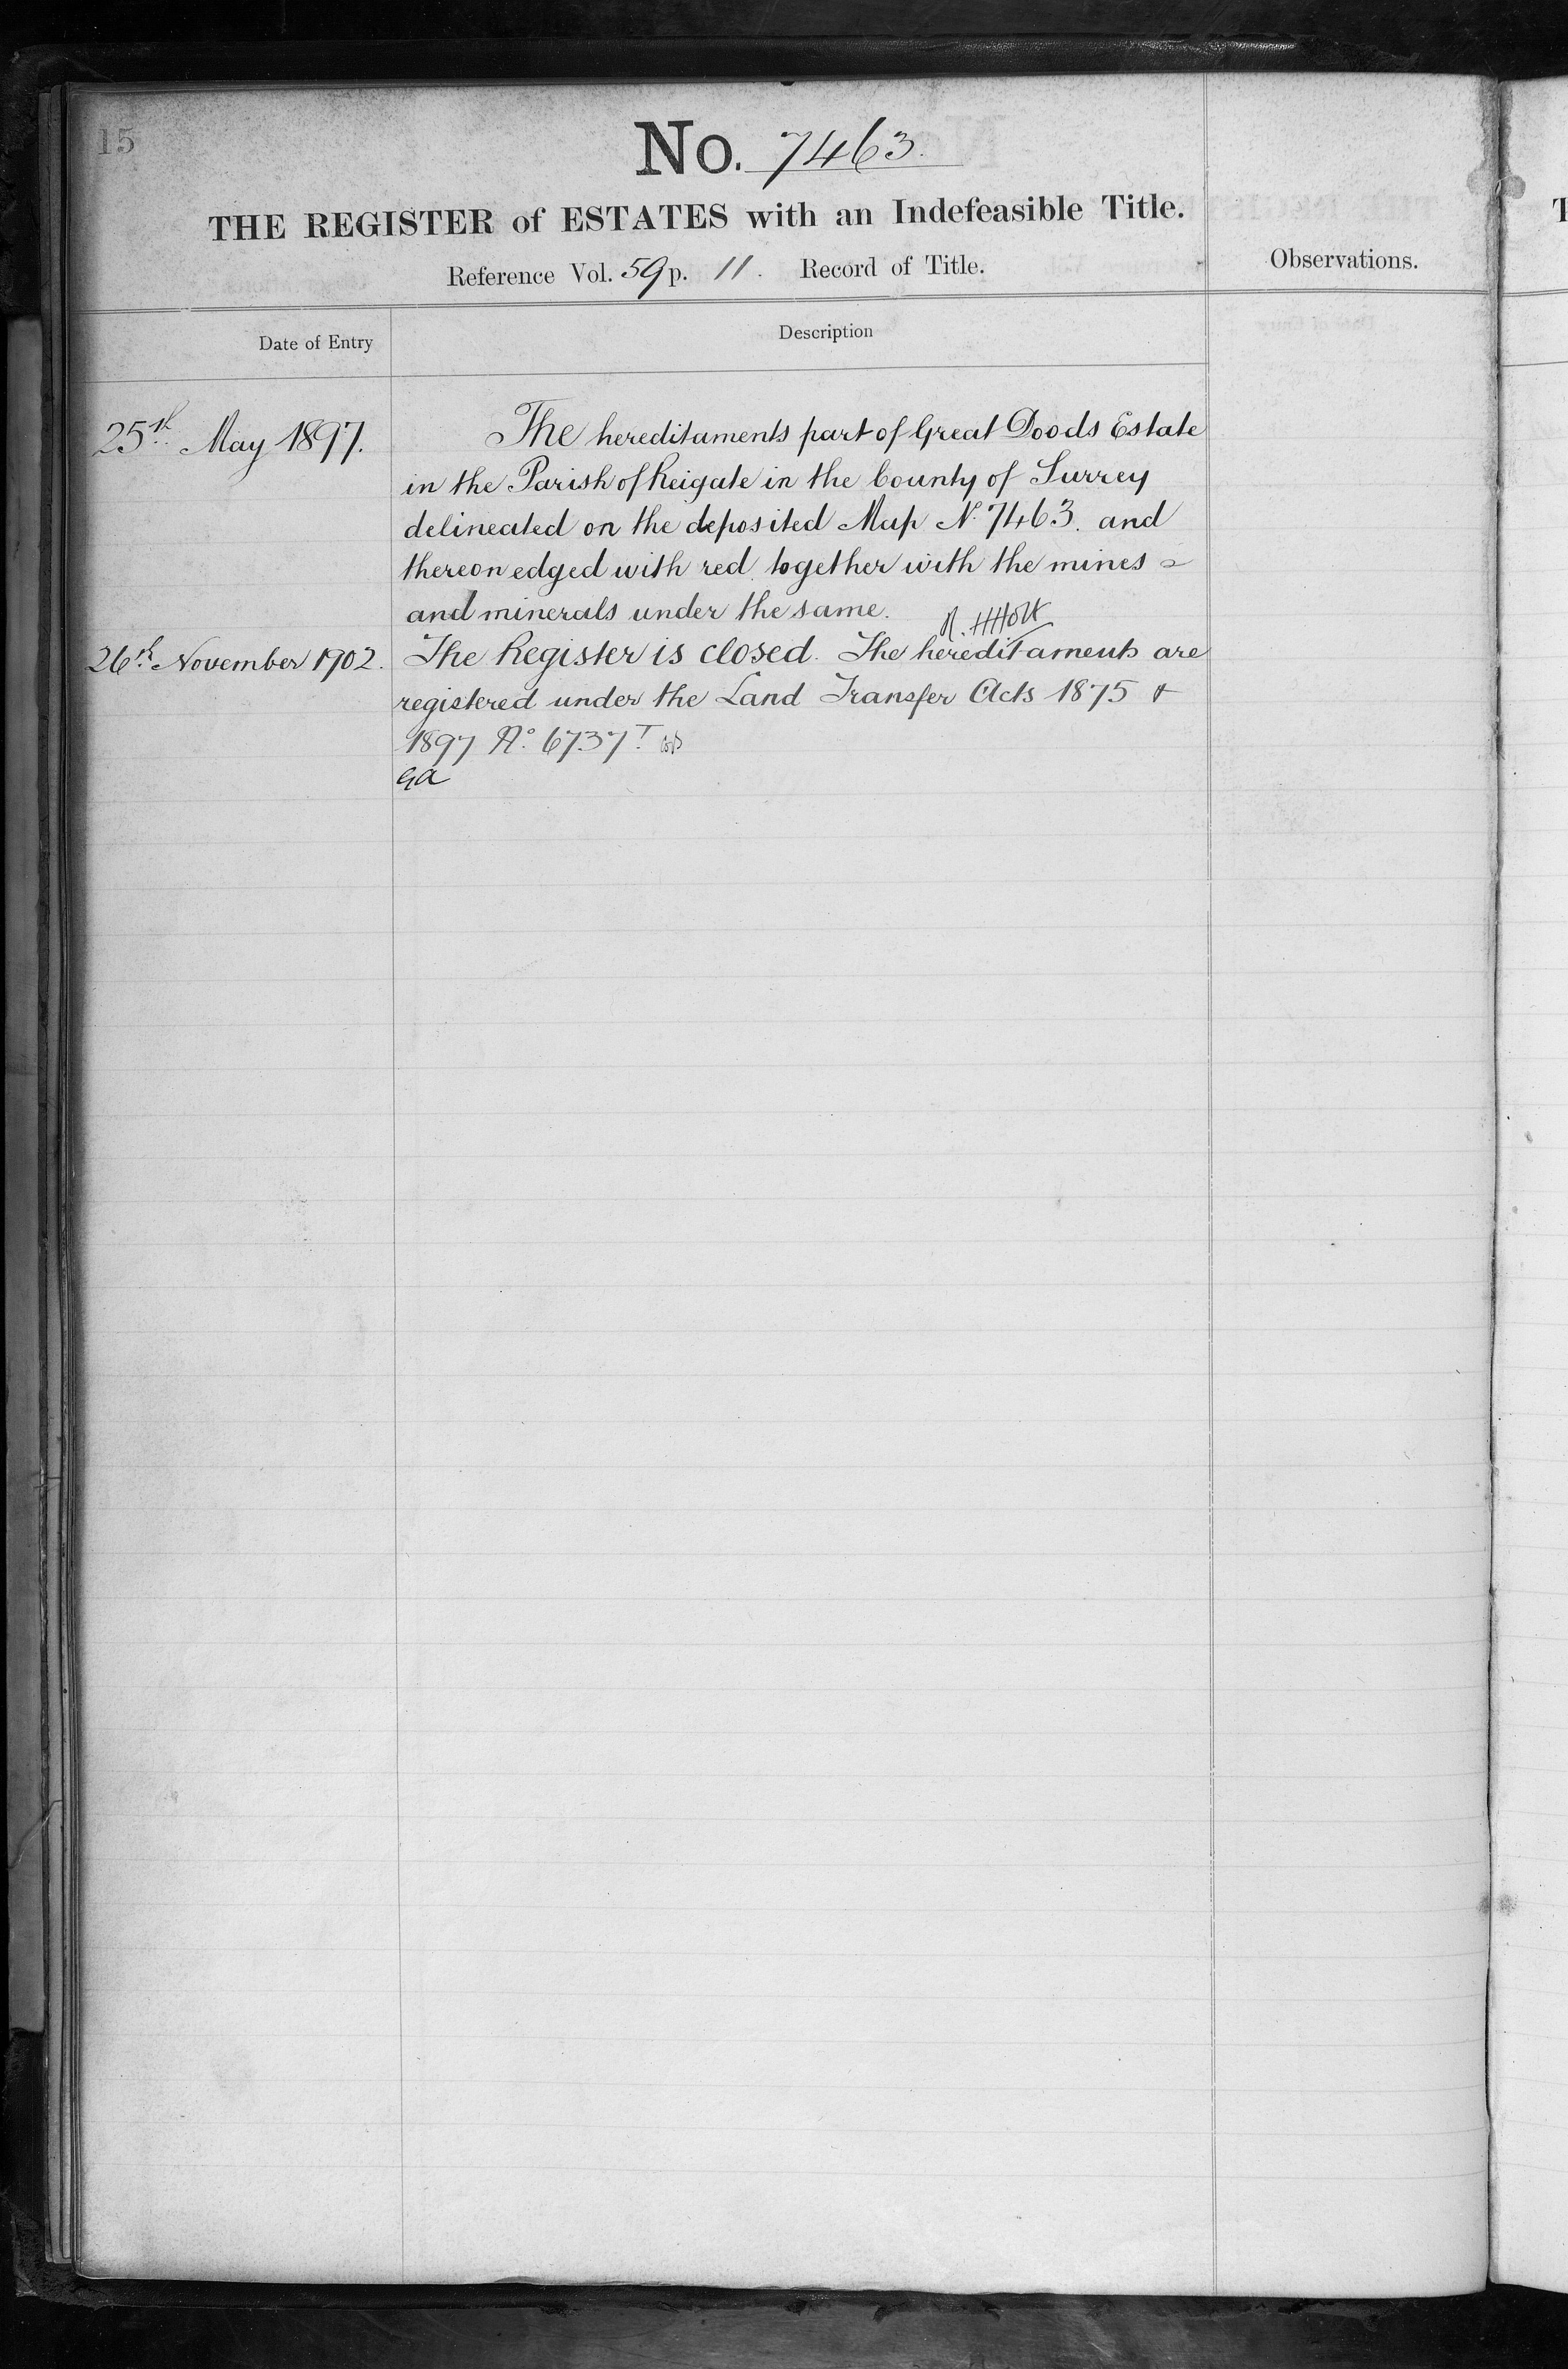 15
No. 7463.
THE REGISTER of ESTATES with an Indefeasible Title.
Reference Vol. 59 p. 11. Record of Title.
Observations.
Date of Entry
Description
25th May 1897.
The hereditaments part of Great Doods Estate
in the Parish of Reigate in the County of Surrey
delineated on the deposited Map No. 7463. and
thereon edged with red together with the mines
and minerals under the same.
26th November 1902.
The Register is closed. The hereditaments are
registered under the Land Transfer Acts 1875 &
1897 No. 6737